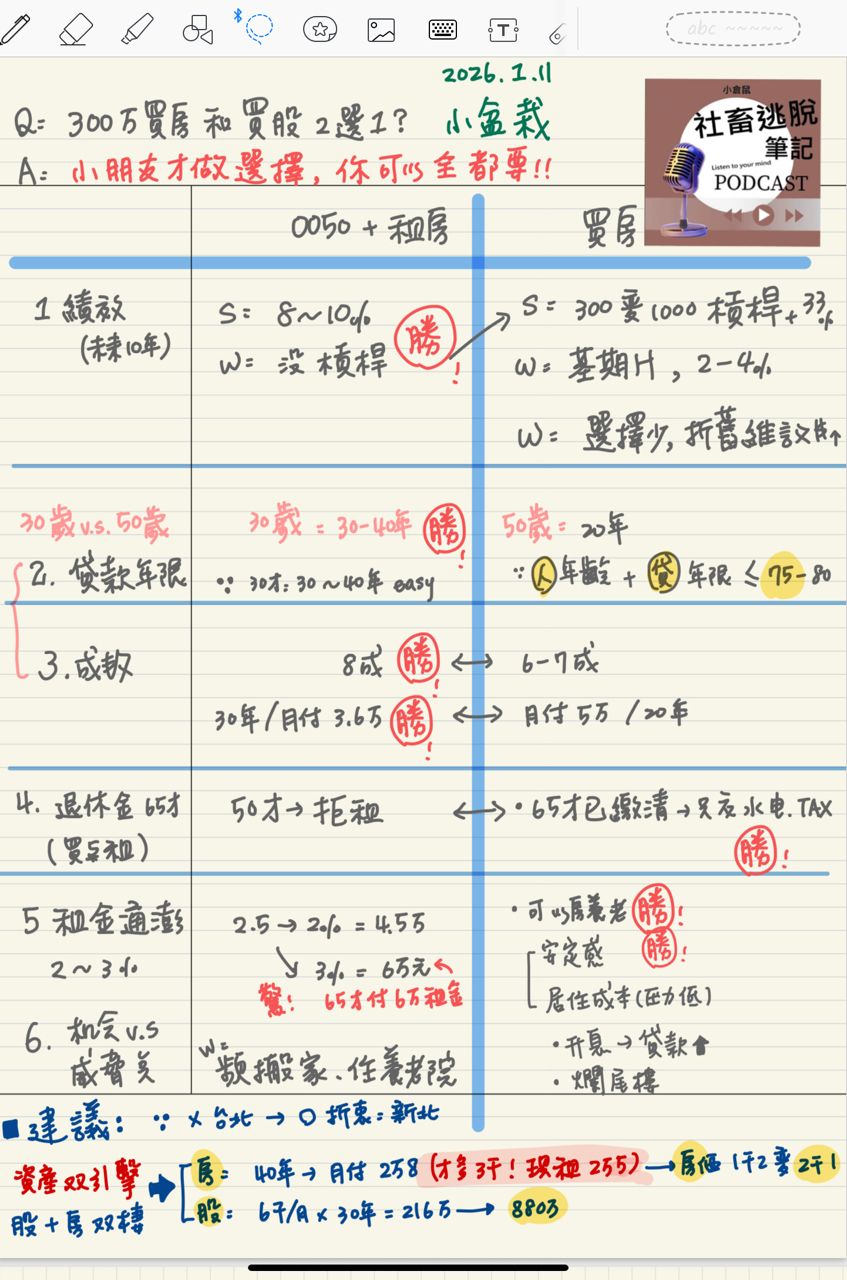 abc ~~~~~
2026.1.11
Q= 300万買房和買股2選1?
小盆栽
A: 小朋友才做選擇, 你可以全都要!!
小倉鼠
社畜逃脫
筆記
Listen to your mind
PODCAST
0050 + 租房
買房
1 績效
(未來10年)
S= 8~10%
W= 沒槓桿
勝!
S= 300變1000 槓桿+33%
W= 基期高, 2-4%
W= 選擇少, 折舊維護
30歲 v.s. 50歲
30歲 = 30-40年 勝!
50歲= 20年
2. 貸款年限
∵ 30才: 30~40年 easy
∵ 人年齡 + 貸年限 ≤ 75-80
3. 成數
8成 勝! ↔ 6-7成
30年/月付 3.6万 勝! ↔ 月付 5万 /20年
4. 退休金 65才
(買与租)
50才→ 拒租 ↔ • 65才已繳清→只交水电.TAX
勝!
5 租金通澎
2~3%
2.5 → 2% = 4.5万
↘ 3% = 6万元
驚! 65才付6万租金
• 可以房養老 勝!
安定感 勝!
居住成本(压力低)
6. 机会 v.s
威脅
W=
頻搬家、住養老院
• 升息→貸款⬆
• 爛尾樓
■ 建議: ∵ × 台北 → ○ 折衷=新北
資產双引擎
股+房双棲
房= 40年→月付 258 (才多3千! 現租 255) → 房価 1千2 變 2千1
股= 6千/月×30年=216万 → 880万